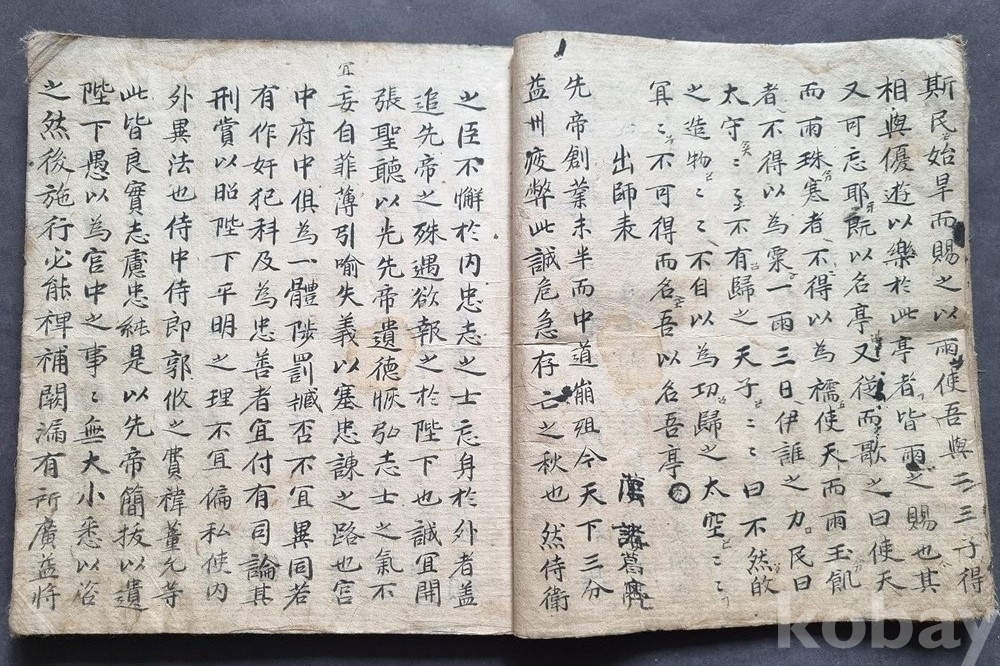 斯民始旱而賜之以雨使吾與三三子得
相與優遊以樂於此亭者皆雨之賜也其
又可忘耶旣以名亭又從而歌之曰使天
而雨珠寒者不得以為襦使天而雨玉飢
者不得以為粟一雨三日伊誰之力民曰
太守〻不有歸之天子〻曰不然
之造物〻不自以為功歸之太空〻
冥〻不可得而名吾以名吾亭
出師表 漢 諸葛亮
先帝創業未半而中道崩殂今天下三分
益州疲弊此誠危急存亡之秋也 然侍衛
之臣不懈於內忠志之士忘身於外者盖
追先帝之殊遇欲報之於陛下也誠宜開
張聖聽以光先帝遺德恢弘志士之氣不
宜
妄自菲薄引喻失義以塞忠諫之路也宮
中府中俱為一體陟罰臧否不宜異同若
有作奸犯科及為忠善者宜付有司論其
刑賞以昭陛下平明之理不宜偏私使內
外異法也侍中侍郎郭攸之費禕董允等
此皆良實志慮忠純是以先帝簡拔以遺
陛下愚以為宮中之事〻無大小悉以咨
之然後施行必能裨補闕漏有所廣益將
kobay